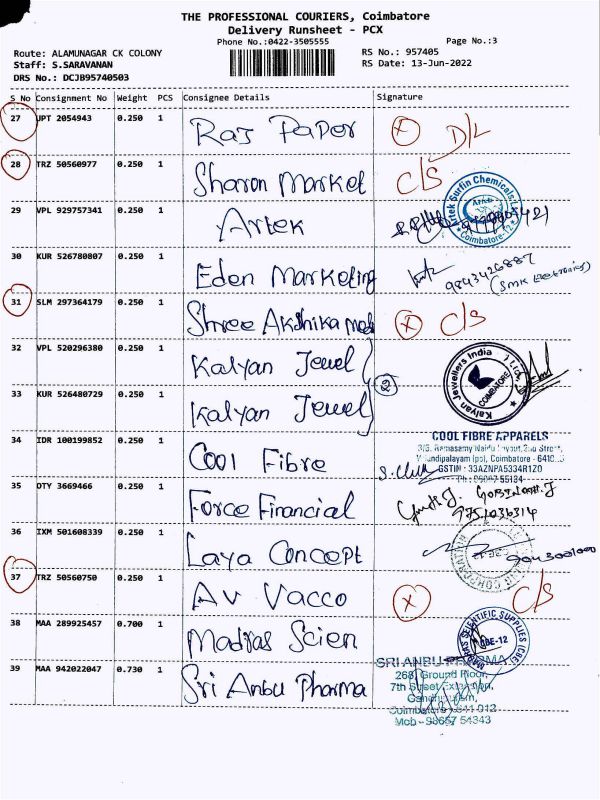 THE PROFESSIONAL COURIERS, Coimbatore
Delivery Runsheet - PCX
Phone No.:0422-3505555
Page No.:3
Route: ALAMUNAGAR CK COLONY
RS No.: 957405
Staff: S.SARAVANAN
RS Date: 13-Jun-2022
DRS No.: DCJB95740503
S No Consignment No Weight PCS Consignee Details Signature
27 JPT 2054943 0.250 1 Raj Paper X D/L
28 TRZ 50560977 0.250 1 Sharon Market C/S
29 VPL 929757341 0.250 1 Artek
Artek Surfin Chemicals
Coimbatore-12
30 KUR 526780807 0.250 1 Eden Marketing 9843426887
(SMK Eletronics)
31 SLM 297364179 0.250 1 Shree Akshika Med X C/S
32 VPL 520296380 0.250 1 Kalyan Jewel
x2
Kalyan Jewellers India
COIMBATORE
33 KUR 526480729 0.250 1 Kalyan Jewel
34 IDR 100199852 0.250 1 Cool Fibre
COOL FIBRE APPARELS
Ramasamy Naidu Layout, 2nd Street,
Coimbatore -
GSTIN : 33AZNPA5334R1Z0
35 DTY 3669466 0.250 1 Force Financial GOBINATH.J
9751036314
36 IXM 501608339 0.250 1 Laya Concept
37 TRZ 50560750 0.250 1 AV Vacco X C/S
38 MAA 289925457 0.700 1 Madras Scien
MADRAS SCIENTIFIC SUPPLIES (CBE)
CBE-12
39 MAA 942022047 0.730 1 Sri Anbu Pharma
SRI ANBU PHARMA
268, Ground Floor,
7th Street Extension,
Coimbatore - 641 012
Mob - 98657 54343